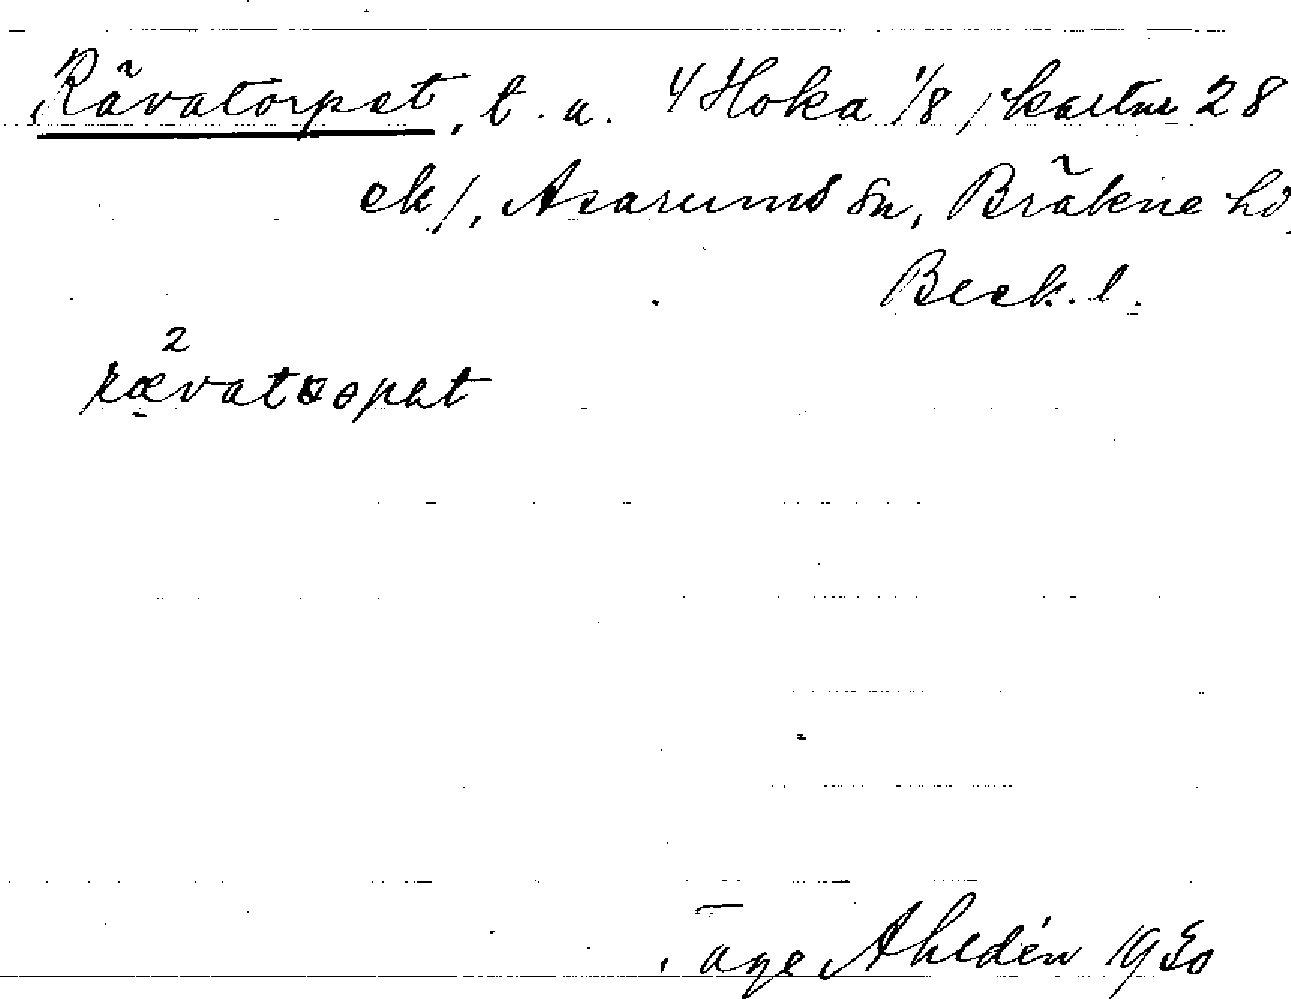 Rävatorpet, t. u. 4 Hoka 1/8 /kartm 28
ek/, Asarums sn, Bräkne hd,
Blek. l.
2
rævatoopet
Tage Ahldén 1930